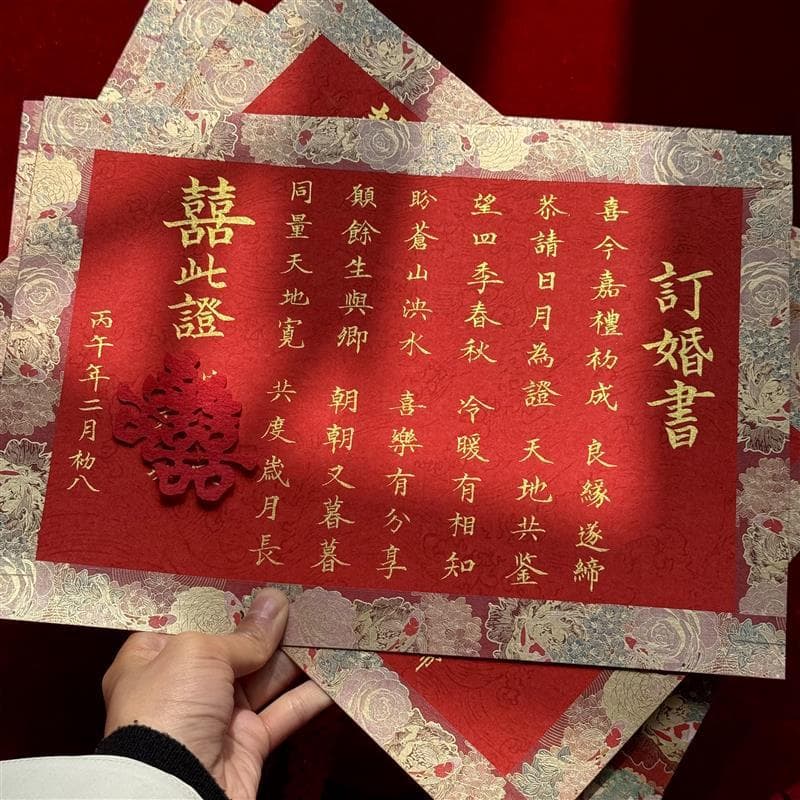 訂婚書
喜今嘉禮初成 良緣遂締
恭請日月為證 天地共鉴
望四季春秋 冷暖有相知
盼蒼山泱水 喜樂有分享
願餘生與卿 朝朝又暮暮
同量天地寬 共度歲月長
囍此證
囍
丙午年二月初八